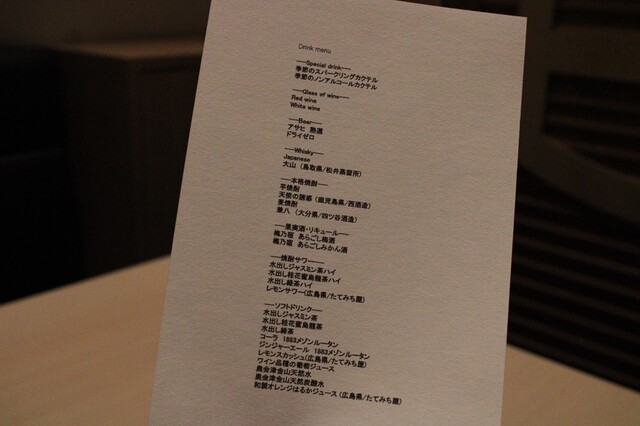 Drink menu
—Special drink—
季節のスパークリングカクテル
季節のノンアルコールカクテル
—Glass of wine—
Red wine
White wine
—Beer—
アサヒ 熟選
ドライゼロ
—Whisky—
Japanese
大山 (鳥取県/松井蒸留所)
—本格焼酎—
芋焼酎
天使の誘惑 (鹿児島県/西酒造)
麦焼酎
兼八 (大分県/四ツ谷酒造)
—果実酒・リキュール—
梅乃宿 あらごし梅酒
梅乃宿 あらごしみかん酒
—焼酎サワー—
水出しジャスミン茶ハイ
水出し桂花蜜烏龍茶ハイ
水出し緑茶ハイ
レモンサワー(広島県/たてみち屋)
—ソフトドリンク—
水出しジャスミン茶
水出し桂花蜜烏龍茶
水出し緑茶
コーラ 1883メゾンルータン
ジンジャーエール 1883メゾンルータン
レモンスカッシュ(広島県/たてみち屋)
ワイン品種の葡萄ジュース
奥会津金山天然水
奥会津金山天然炭酸水
和製オレンジはるかジュース (広島県/たてみち屋)